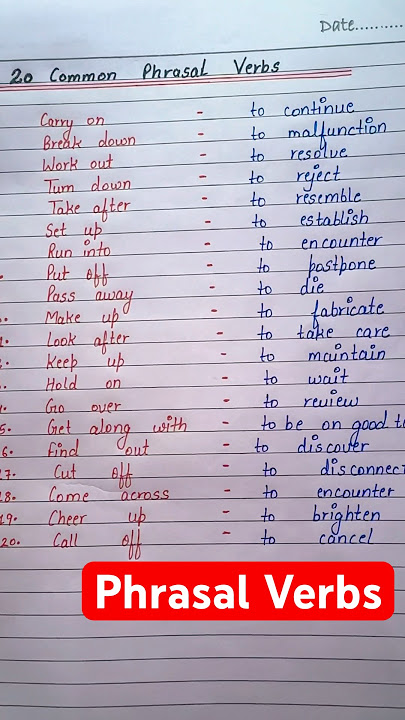 Date...........
20 Common Phrasal Verbs
Carry on - to continue
Break down - to malfunction
Work out - to resolve
Turn down - to reject
Take after - to resemble
Set up - to establish
Run into - to encounter
Put off - to postpone
Pass away - to die
Make up - to fabricate
Look after - to take care
Keep up - to maintain
Hold on - to wait
Go over - to review
5. Get along with - to be on good
6. Find out - to discover
17. Cut off - to disconnect
18. Come across - to encounter
19. Cheer up - to brighten
20. Call off - to cancel
Phrasal Verbs